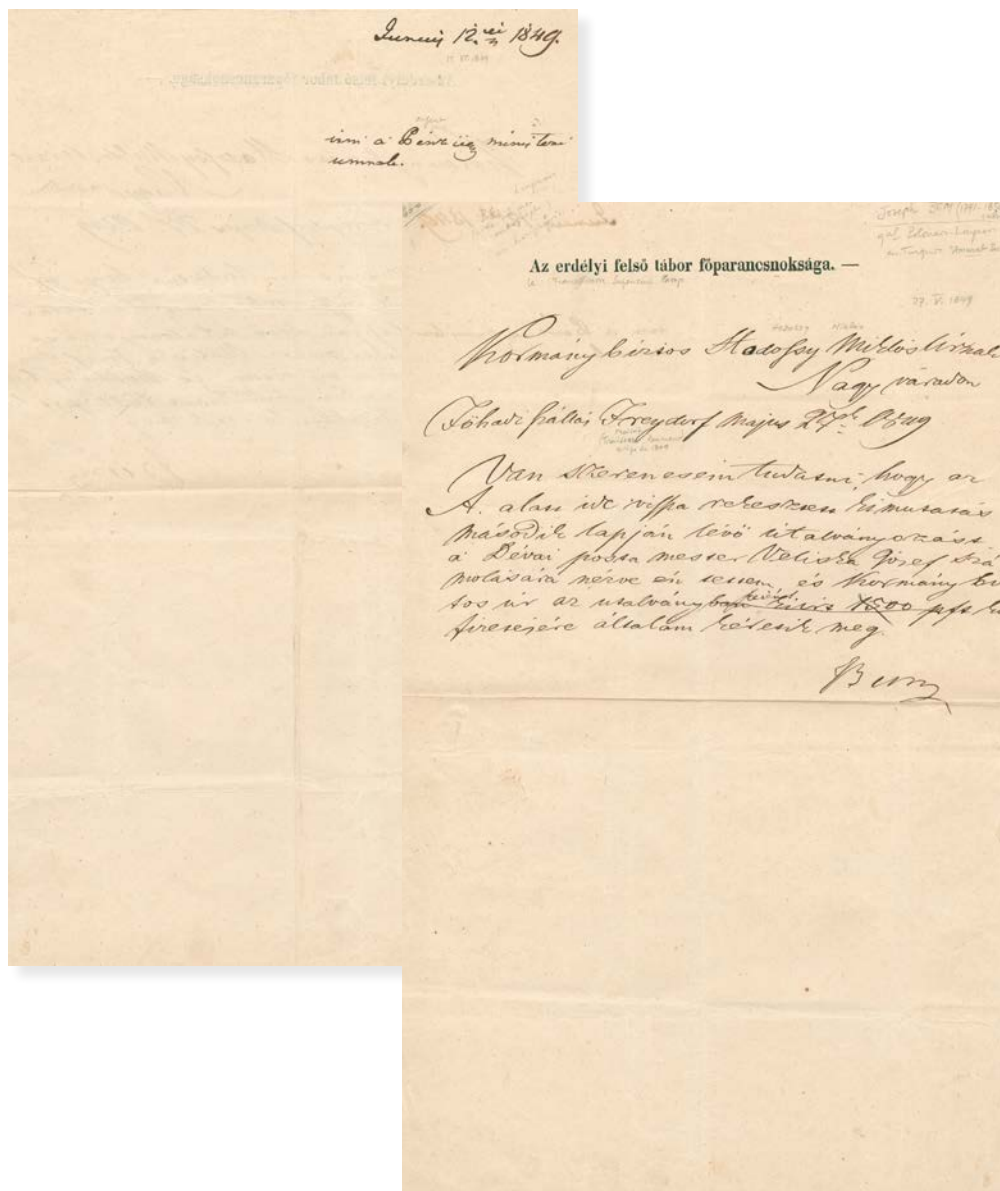 Junius 12 1849.
irni a Pénzügy ministeri
umnak.
Joseph BEM
Az erdélyi felső tábor főparancsnoksága. —
27. V. 1849
Kormánybiztos Hodossy Miklós Úrnak
Nagy váradon
Főhadi szállás Freydorf Május 27 1849
Van szerencsém tudatni, hogy az
A. alatt ide vissza rekesztett kimutatás
második lapján lévő utalványozást
a Dévai posta mester Veliska József szá
molására nézve én tettem, és Kormány biz
tos úr az utalványban 1500 pft ki
fizetésére általam kéretik meg.
Bem